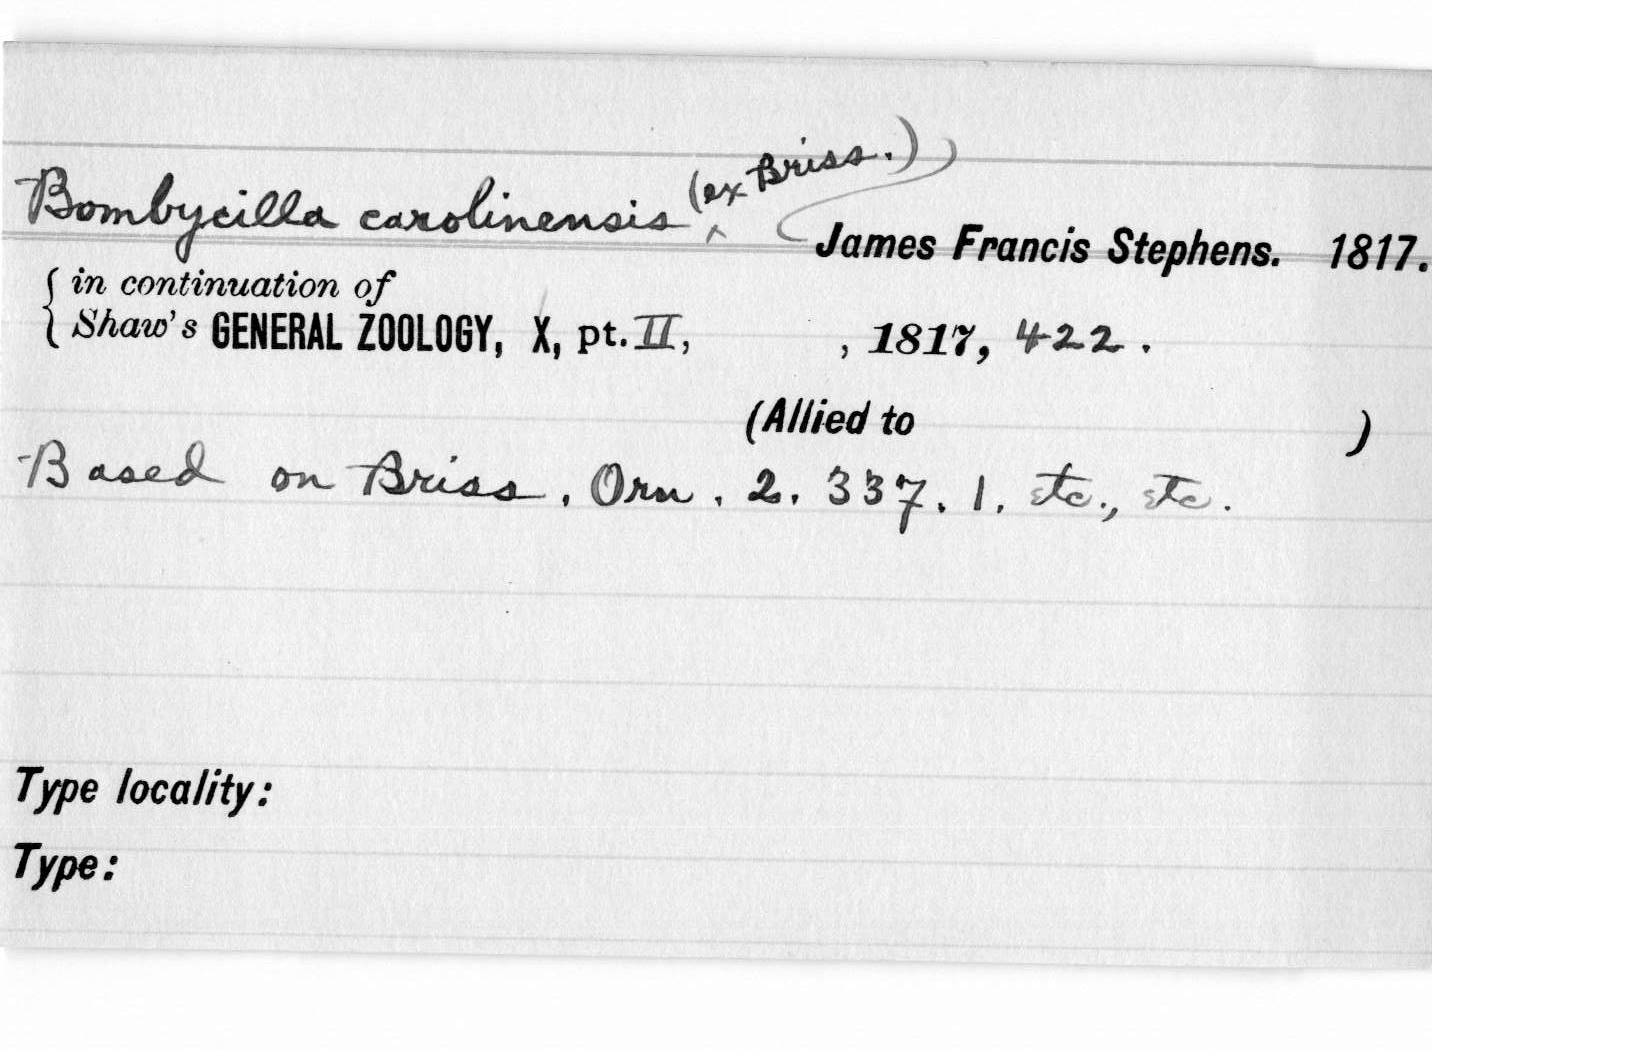 Bombycilla carolinensis (ex Briss.) James Francis Stephens. 1817.
in continuation of
Shaw's GENERAL ZOOLOGY, X, pt. II, , 1817, 422.
(Allied to )
Based on Briss. Orn. 2. 337. 1. etc., etc.
Type locality:
Type: